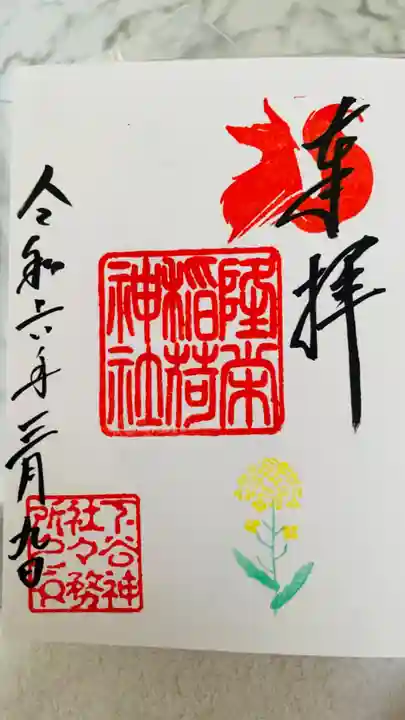 奉拝
隆栄
稲荷
神社
令和六年三月九日
下谷神
社々務
所之印